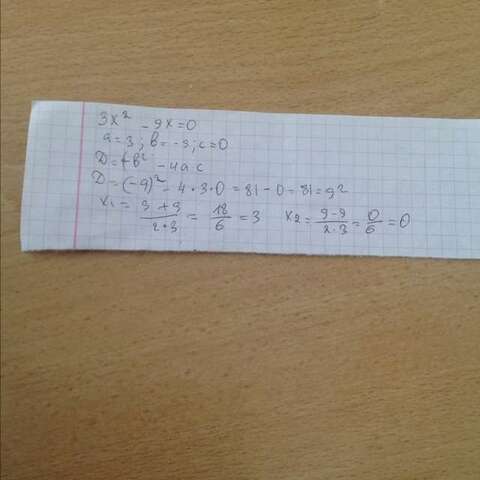 3x² - 9x=0
a=3; b=-9; c=0
D=b² - 4ac
D=(-9)² - 4·3·0=81-0=81=9²
x₁= (9+9)/(2·3) = 18/6 = 3 x₂= (9-9)/(2·3) = 0/6 = 0